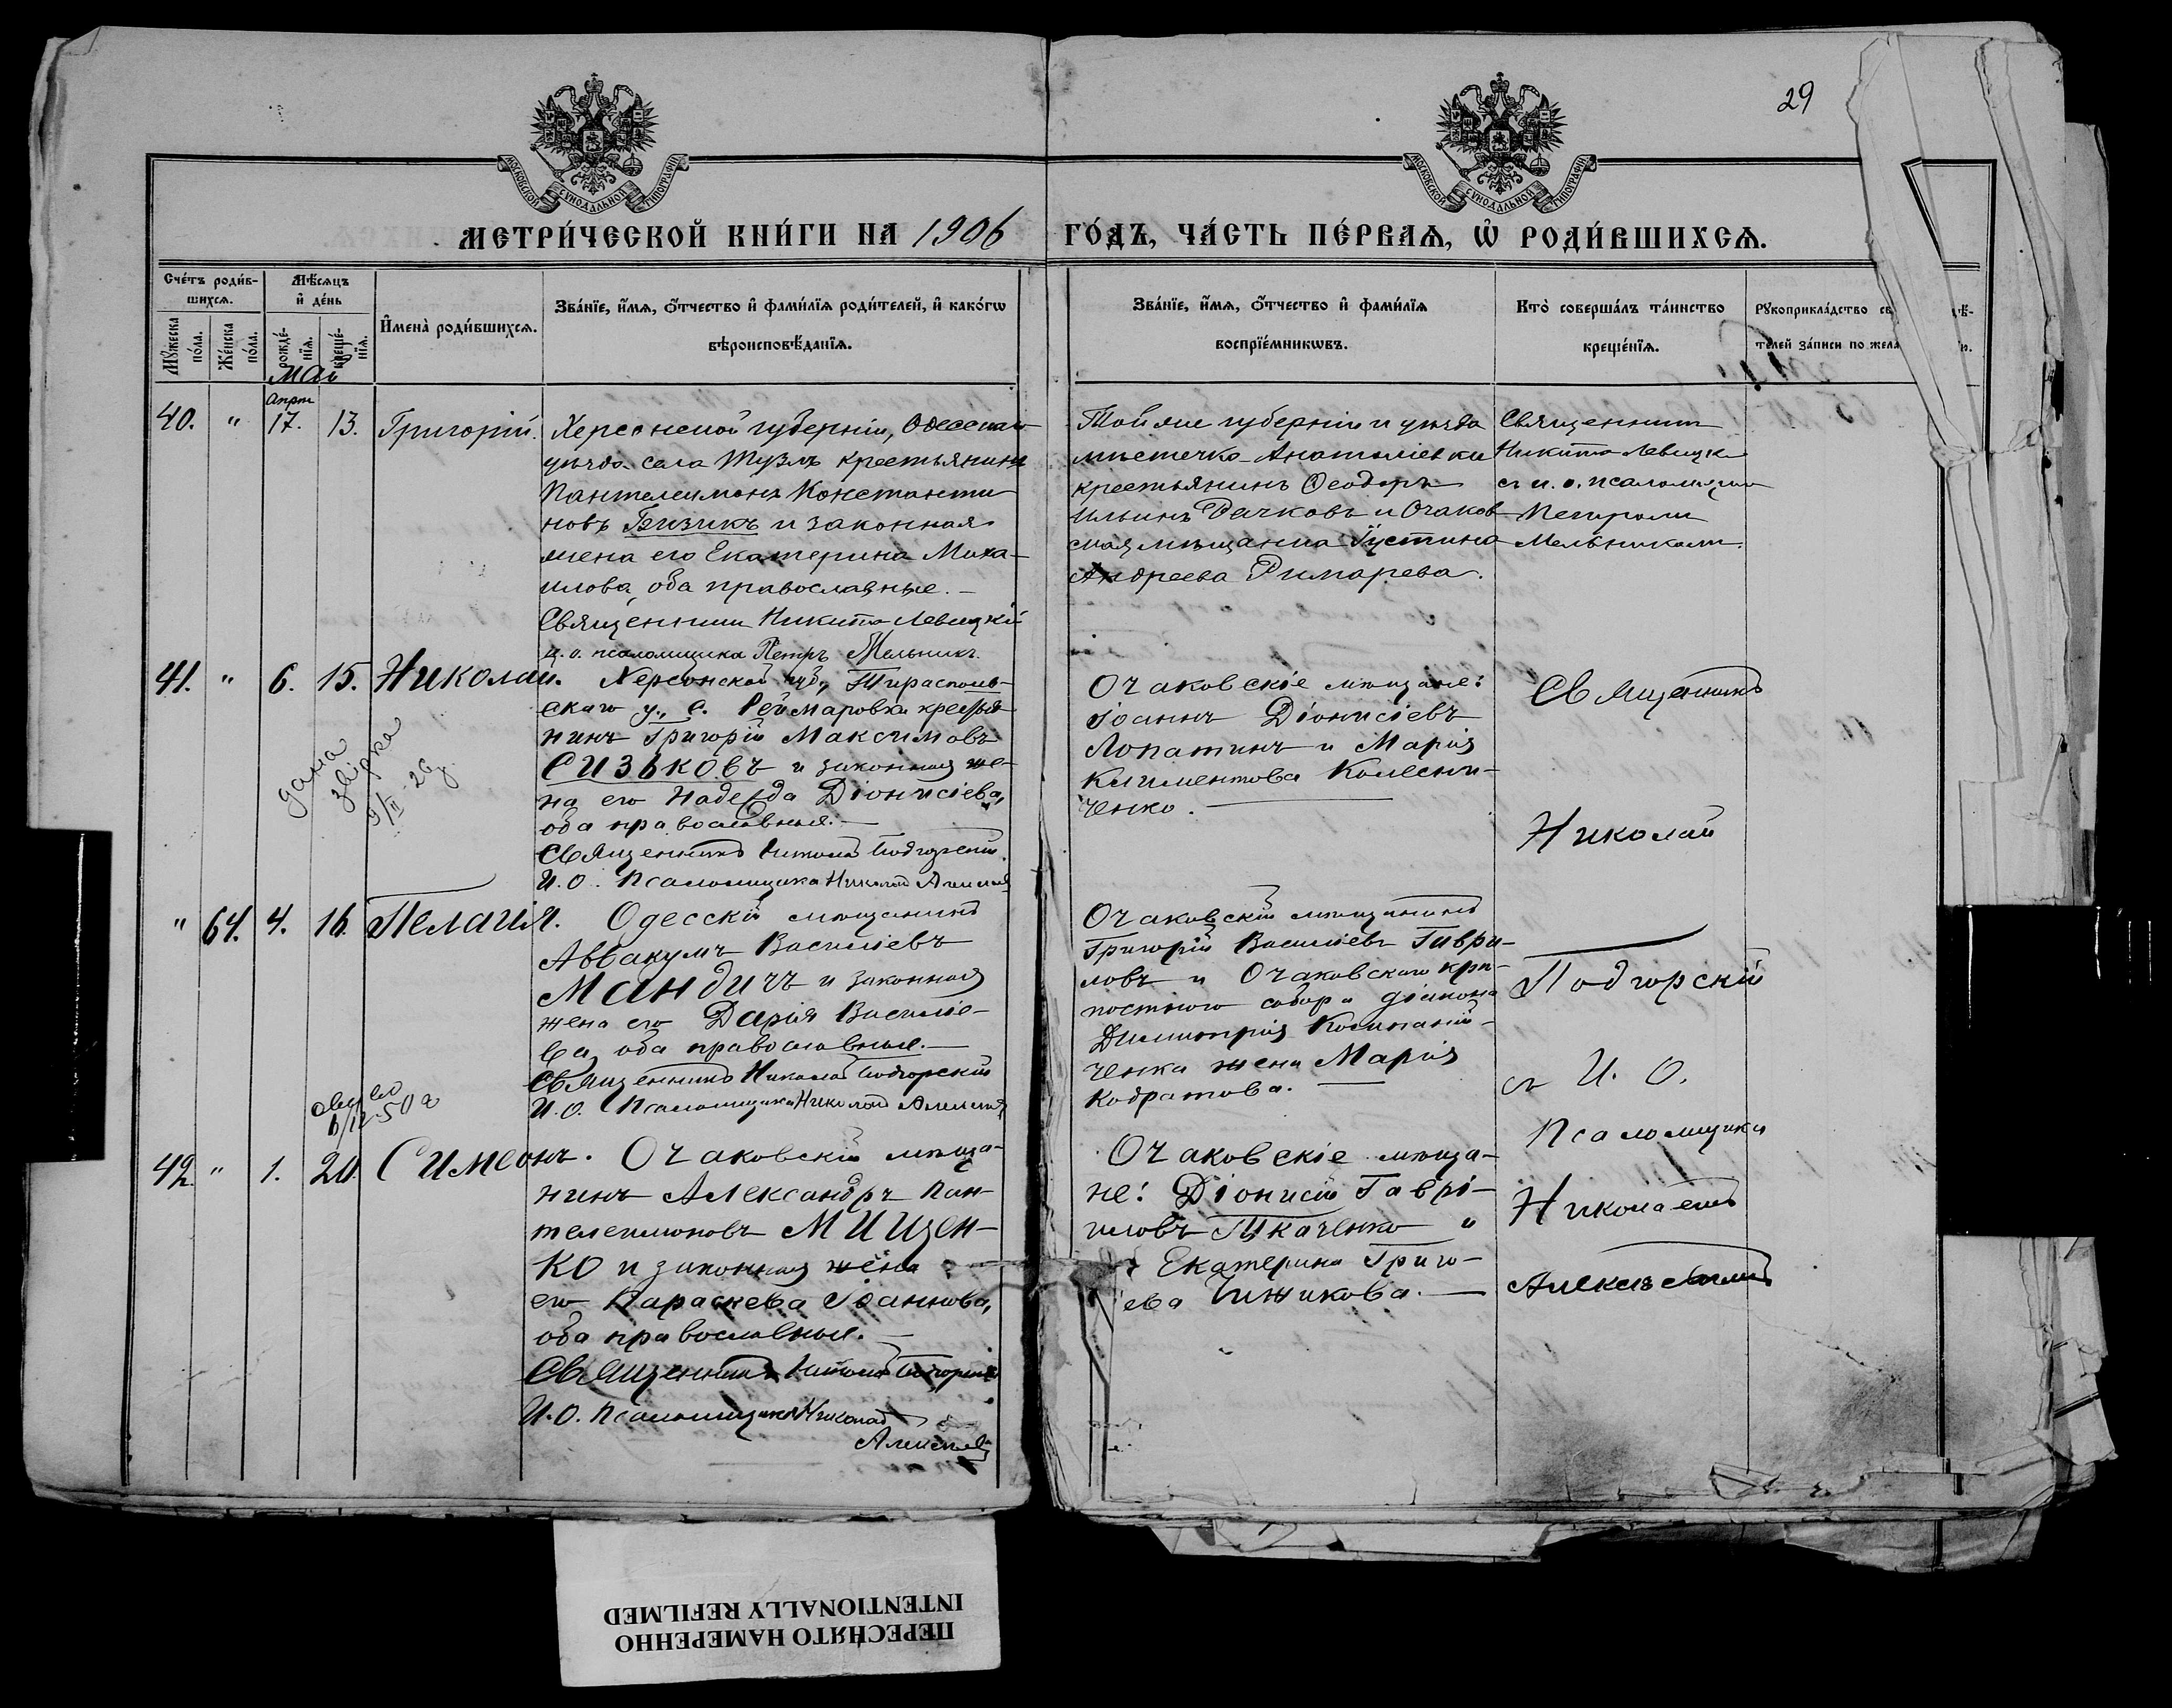 29
МОСКОВСКОЙ СѴНОДАЛЬНОЙ ТИПОГРАФІИ
МОСКОВСКОЙ СѴНОДАЛЬНОЙ ТИПОГРАФІИ
МЕТРИ́ЧЕСКОЙ КНИ́ГИ НА 1906 ГО́ДЪ, ЧА́СТЬ ПЕ́РВАѦ, Ѡ҆ РОДИ́ВШИХСѦ.
Сче́тъ роди́в-
шихсѧ.
Мꙋ́жеска
по́ла.
Же́нска
по́ла.
Мѣ́сѧцъ
и҆ де́нь
рожде́-
нїѧ.
креще́-
нїѧ.
И҆мена̀ роди́вшихсѧ.
Зва́нїе, и҆́мѧ, ѻ҆́тчество и҆ фами́лїѧ роди́телей, и҆ како́гѡ
вѣроисповѣ́данїѧ.
Зва́нїе, и҆́мѧ, ѻ҆́тчество и҆ фами́лїѧ
воспрїе́мникѡвъ.
Кто̀ соверша́лъ та́инство
креще́нїѧ.
Рꙋкоприкла́дство
те́лей за́писи по
Май
40. " Апрѣл 17. 13. Григорій.
Херсонской губерніи, Одесскаго
уѣзда села Тузлъ крестьянинъ
Пантелеимонъ Константи
новъ Гризикъ и законная
жена его Екатерина Миха-
илова, оба православные. –
Священникъ Никита Левицкій
и. о. псаломщика Петръ Мельникъ.
Той же губерніи и уѣзда
мѣстечка Анатоліевки
крестьянинъ Ѳеодоръ
Ильинъ Рачковъ и Очаков
ская мѣщанка Іустина
Андреева Римарева.
Священникъ
Никита Левицкій
съ и. о. псаломщика
Петромъ
Мельникомъ.
41. " 6. 15. Николай.
дана
9/II 26 г.
Херсонской губ., Тирасполь-
скаго у., с. Реймаровки крестья
нинъ Григорій Максимовъ
Сизьковъ и законная же-
на его Надежда Діонисіева,
оба православные. –
Священникъ Николай Подгорскій.
И. О. Псаломщика Николай Алексѣевъ
Очаковскіе мѣщане:
Іоаннъ Діонисіевъ
Лопатинъ и Марія
Климентова Колесни-
ченко. –
Священникъ
Николай
" 64. 4. 16. Пелагія.
Одесскій мѣщанинъ
Аввакумъ Василіевъ
Мандичъ и законная
жена его Дарія Василіе-
ва, оба православные. –
Священникъ Николай Подгорскій
И. О. Псаломщика Николай Алексѣевъ
Очаковскій мѣщанинъ
Григорій Василіевъ Гаври-
ловъ и Очаковскаго крѣ-
постного собора діакона
Димитрія Компаній-
ченка жена Марія
Кодратова. –
Подгорскій
съ И. О.
Псаломщика
42. " 1. 20. Симеонъ.
Очаковскій мѣща-
нинъ Александръ Пан-
телеимоновъ Мищен-
ко и законная жена
его Параскева Іоаннова,
оба православные. –
Священникъ Николай Подгорскій
И. О. Псаломщика Николай
Алексѣевъ
Очаковскіе мѣща-
не: Діонисій Гаврі-
иловъ Ткаченко и
Екатерина Григо-
ева Чижикова. –
Николаемъ
Алексѣевымъ
ПЕРЕСНЯТО НАМЕРЕННО
INTENTIONALLY REFILMED